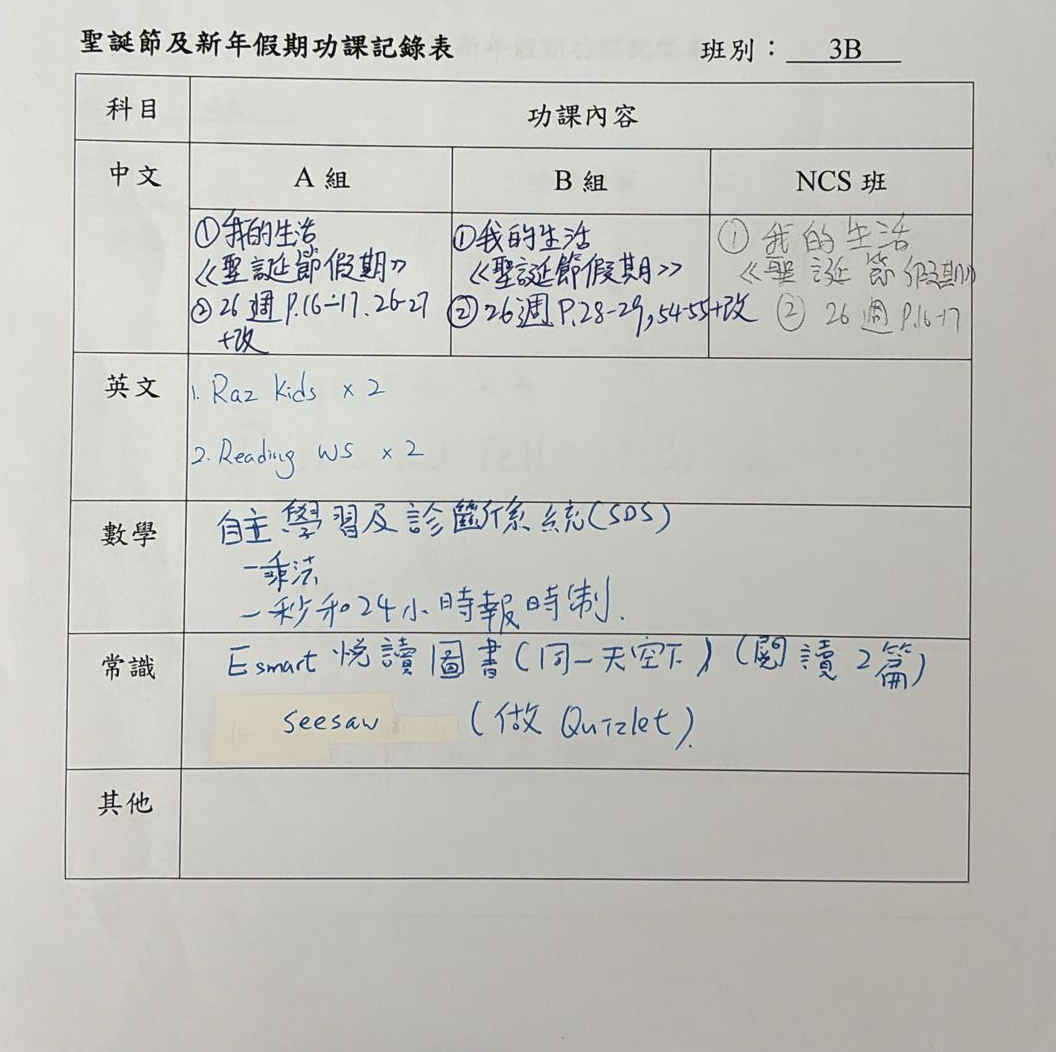 聖誕節及新年假期功課記錄表
班別：3B
科目
功課內容
中文
A 組
B 組
NCS 班
①我的生活
《聖誕節假期》
②26週 P.16-17, 26-27
+改
①我的生活
《聖誕節假期》
②26週 P.28-29, 54-55+改
① 我的生活
《聖誕節假期》
② 26週 P.16-17
英文
1. Raz Kids x 2
2. Reading WS x 2
數學
自主學習及診斷系統(SDS)
－乘法
－秒和24小時報時制.
常識
Esmart 悅讀圖書(同一天空下)(閱讀2篇)
seesaw (做 Quizlet).
其他